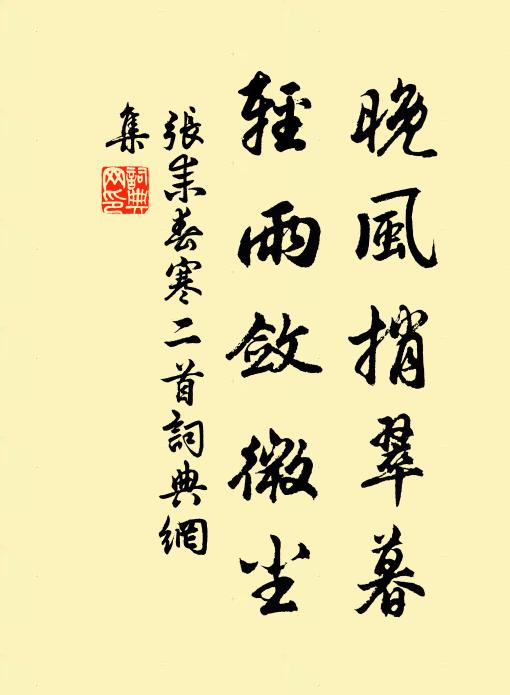 晚風捎翠暮
輕雨斂微尘
張耒春寒二首詞典網
集
詞典
网印